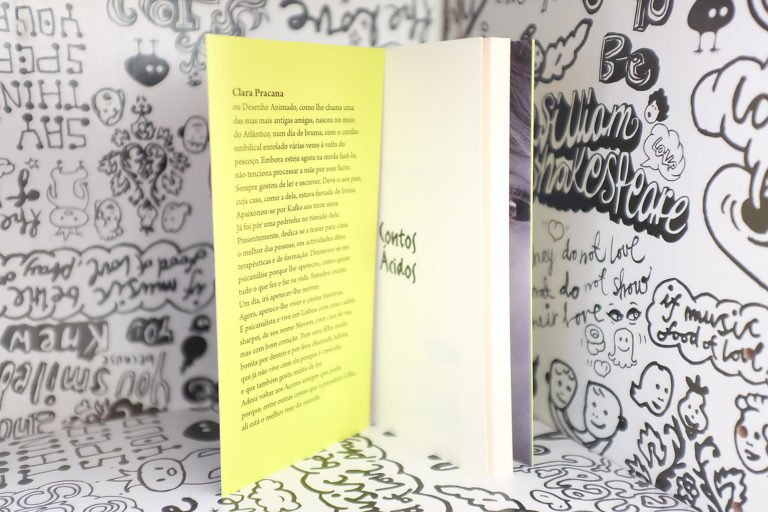 YOU
SPEA
THIN
SAY
Clara Pracana
ou Desenho Animado, como lhe chama uma
das suas mais antigas amigas, nasceu no meio
do Atlântico, num dia de bruma, com o cordão
umbilical enrolado várias vezes à volta do
pescoço. Embora esteja agora na moda fazê-lo,
não tenciona processar a mãe por esse facto.
Sempre gostou de ler e escrever. Deve-o aos pais,
cuja casa, como a dela, estava forrada de livros.
Apaixonou-se por Kafka aos treze anos.
Já foi pôr uma pedrinha no túmulo dele.
Presentemente, dedica-se a trazer para cima
o melhor das pessoas, em actividades ditas
terapêuticas e de formação. Doutorou-se em
psicanálise porque lhe apeteceu, como quase
tudo o que fez e faz na vida. Estudou muito.
Um dia, irá apetecer-lhe morrer.
Agora, apetece-lhe viver e contar histórias.
É psicanalista e vive em Lisboa com uma cadela
sharpei, de seu nome Nuvem, com cara de má,
mas com bom coração. Tem uma filha muito
bonita por dentro e por fora chamada Julieta,
que já não vive com ela porque é crescida,
e que também gosta muito de ler.
Adora voltar aos Açores sempre que pode,
porque, entre outras coisas que a prendem à ilha,
ali está o melhor mar do mundo.
Contos
Ácidos
if music
be the
food of love
play on
KNEW
YOU
because
You smiled
Be
William
Shakespeare
Love
They do not love
that do not show
their love
if music
food of love